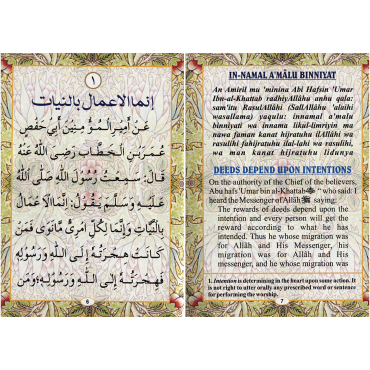 ١
إنما الاعمال بالنيات
عَنْ أَمِيرِ الْمُؤْمِنِينَ أَبِي حَفْصٍ
عُمَرَ بْنِ الْخَطَّابِ رَضِيَ اللهُ عَنْهُ
قَالَ: سَمِعْتُ رَسُولَ اللهِ صَلَّى اللهُ
عَلَيْهِ وَسَلَّمَ يَقُولُ: إِنَّمَا الْأَعْمَالُ
بِالنِّيَّاتِ وَإِنَّمَا لِكُلِّ امْرِئٍ مَّانَوَى فَمَنْ
كَانَتْ هِجْرَتُهُ إِلَى اللهِ وَرَسُولِهِ
فَهِجْرَتُهُ إِلَى اللهِ وَرَسُولِهِ؛ وَمَنْ
6
IN-NAMAL A'MÂLU BINNIYAT
An Amieril mu 'minina Abi Hafsin 'Umar
Ibn-al-Khattab radhiyAllâhu anhu qala:
sam'itu RasulAllâhi (SallAllâhu 'alaihi
wasallama) yaqulu: innamal a'mali
binniyati wa innama likul-limriyin ma
nawa faman kanat hijratuhu ilAllâhi wa
rasulihi fahijratuhu ilal-lahi wa rasulihi,
wa man kanat hijratuhu lidunya
DEEDS DEPEND UPON INTENTIONS
On the authority of the Chief of the believers,
Abu hafs 'Umar bin al-Khattab "who said: I
heard the Messenger of Allâh ﷺ saying:
The rewards of deeds depend upon the
intention and every person will get the
reward according to what he has
intended. Thus he whose migration was
for Allâh and His Messenger, his
migration was for Allâh and His
Messenger, and he whose migration was
1. Intention is determining in the heart upon some action. It
is not right to utter orally any prescribed word or sentence
for performing the worship.
7